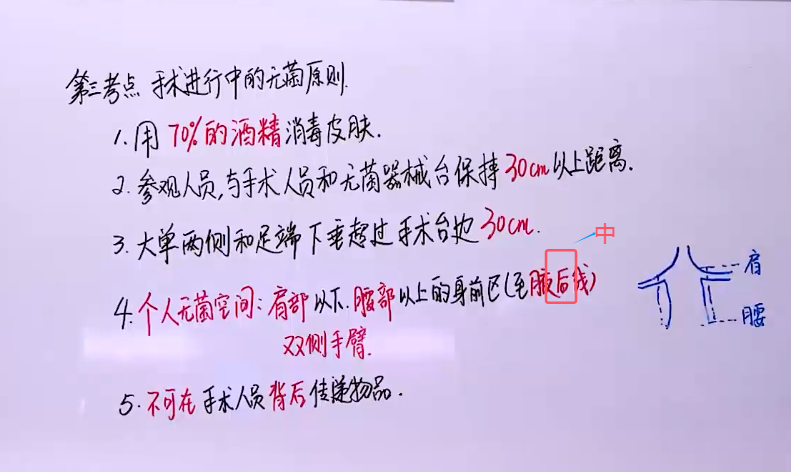 第三考点 手术进行中的无菌原则.
1. 用70%的酒精消毒皮肤.
2. 参观人员,与手术人员和无菌器械台保持30cm以上距离.
3. 大单两侧和足端下垂超过手术台边30cm.
中
4. 个人无菌空间:肩部以下.腰部以上的身前区(至腋后线)
双侧手臂.
肩
腰
5. 不可在手术人员背后传递物品.